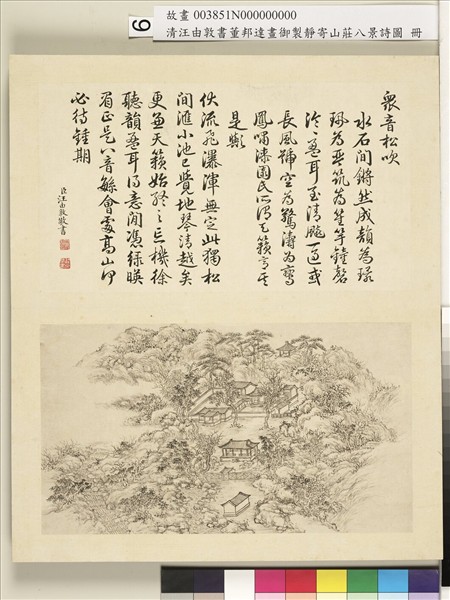 故畫 003851N000000000
清汪由敦書董邦達畫御製靜寄山莊八景詩圖 冊
眾音松吹
水石間鏘然成韻為球
珮為琴筑為笙竽鐘磬
泠泠盈耳至清飈一過或
長風號空為驚濤為鸞
鳳嘯漆園氏所謂天籟者其
是歟
伏流飛瀑渾無定此獨松
間滙小池已覺地琴清越矣
更天籟始終之機徐
聽韻盈耳得意閒憑綠暎
眉正是八音繁會處高山何
必待鍾期
臣汪由敦敬書